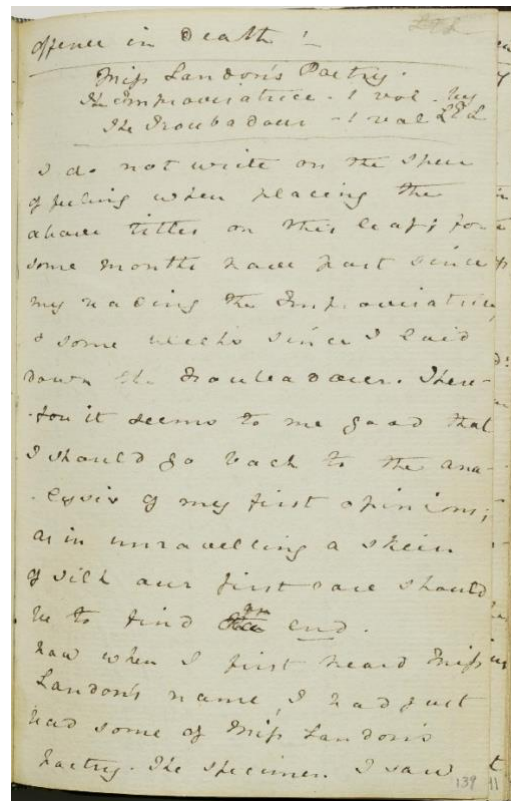 offence in death! -
Miss Landon's Poetry.
The Improvisatrice - 1 vol - by
The Troubadour - 1 vol L E L
I do not write on the spur
of feeling when placing the
above titles on this leaf; for
some months have past since
my reading the Improvisatrice
& some weeks since I laid
down the Troubadour. There-
-fore it seems to me good that
I should go back to the ana-
-lysis of my first opinions;
as in unravelling a skein
of silk our first care should
be to find an end.
Now when I first heard Miss
Landon's name, I had just
read some of Miss Landon's
Poetry. The specimen I saw
139